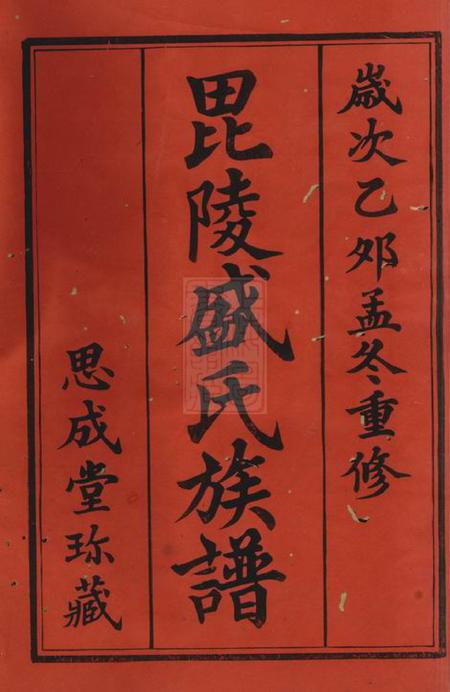 歲次乙夘孟冬重修
毘陵盛氏族譜
思成堂珎藏